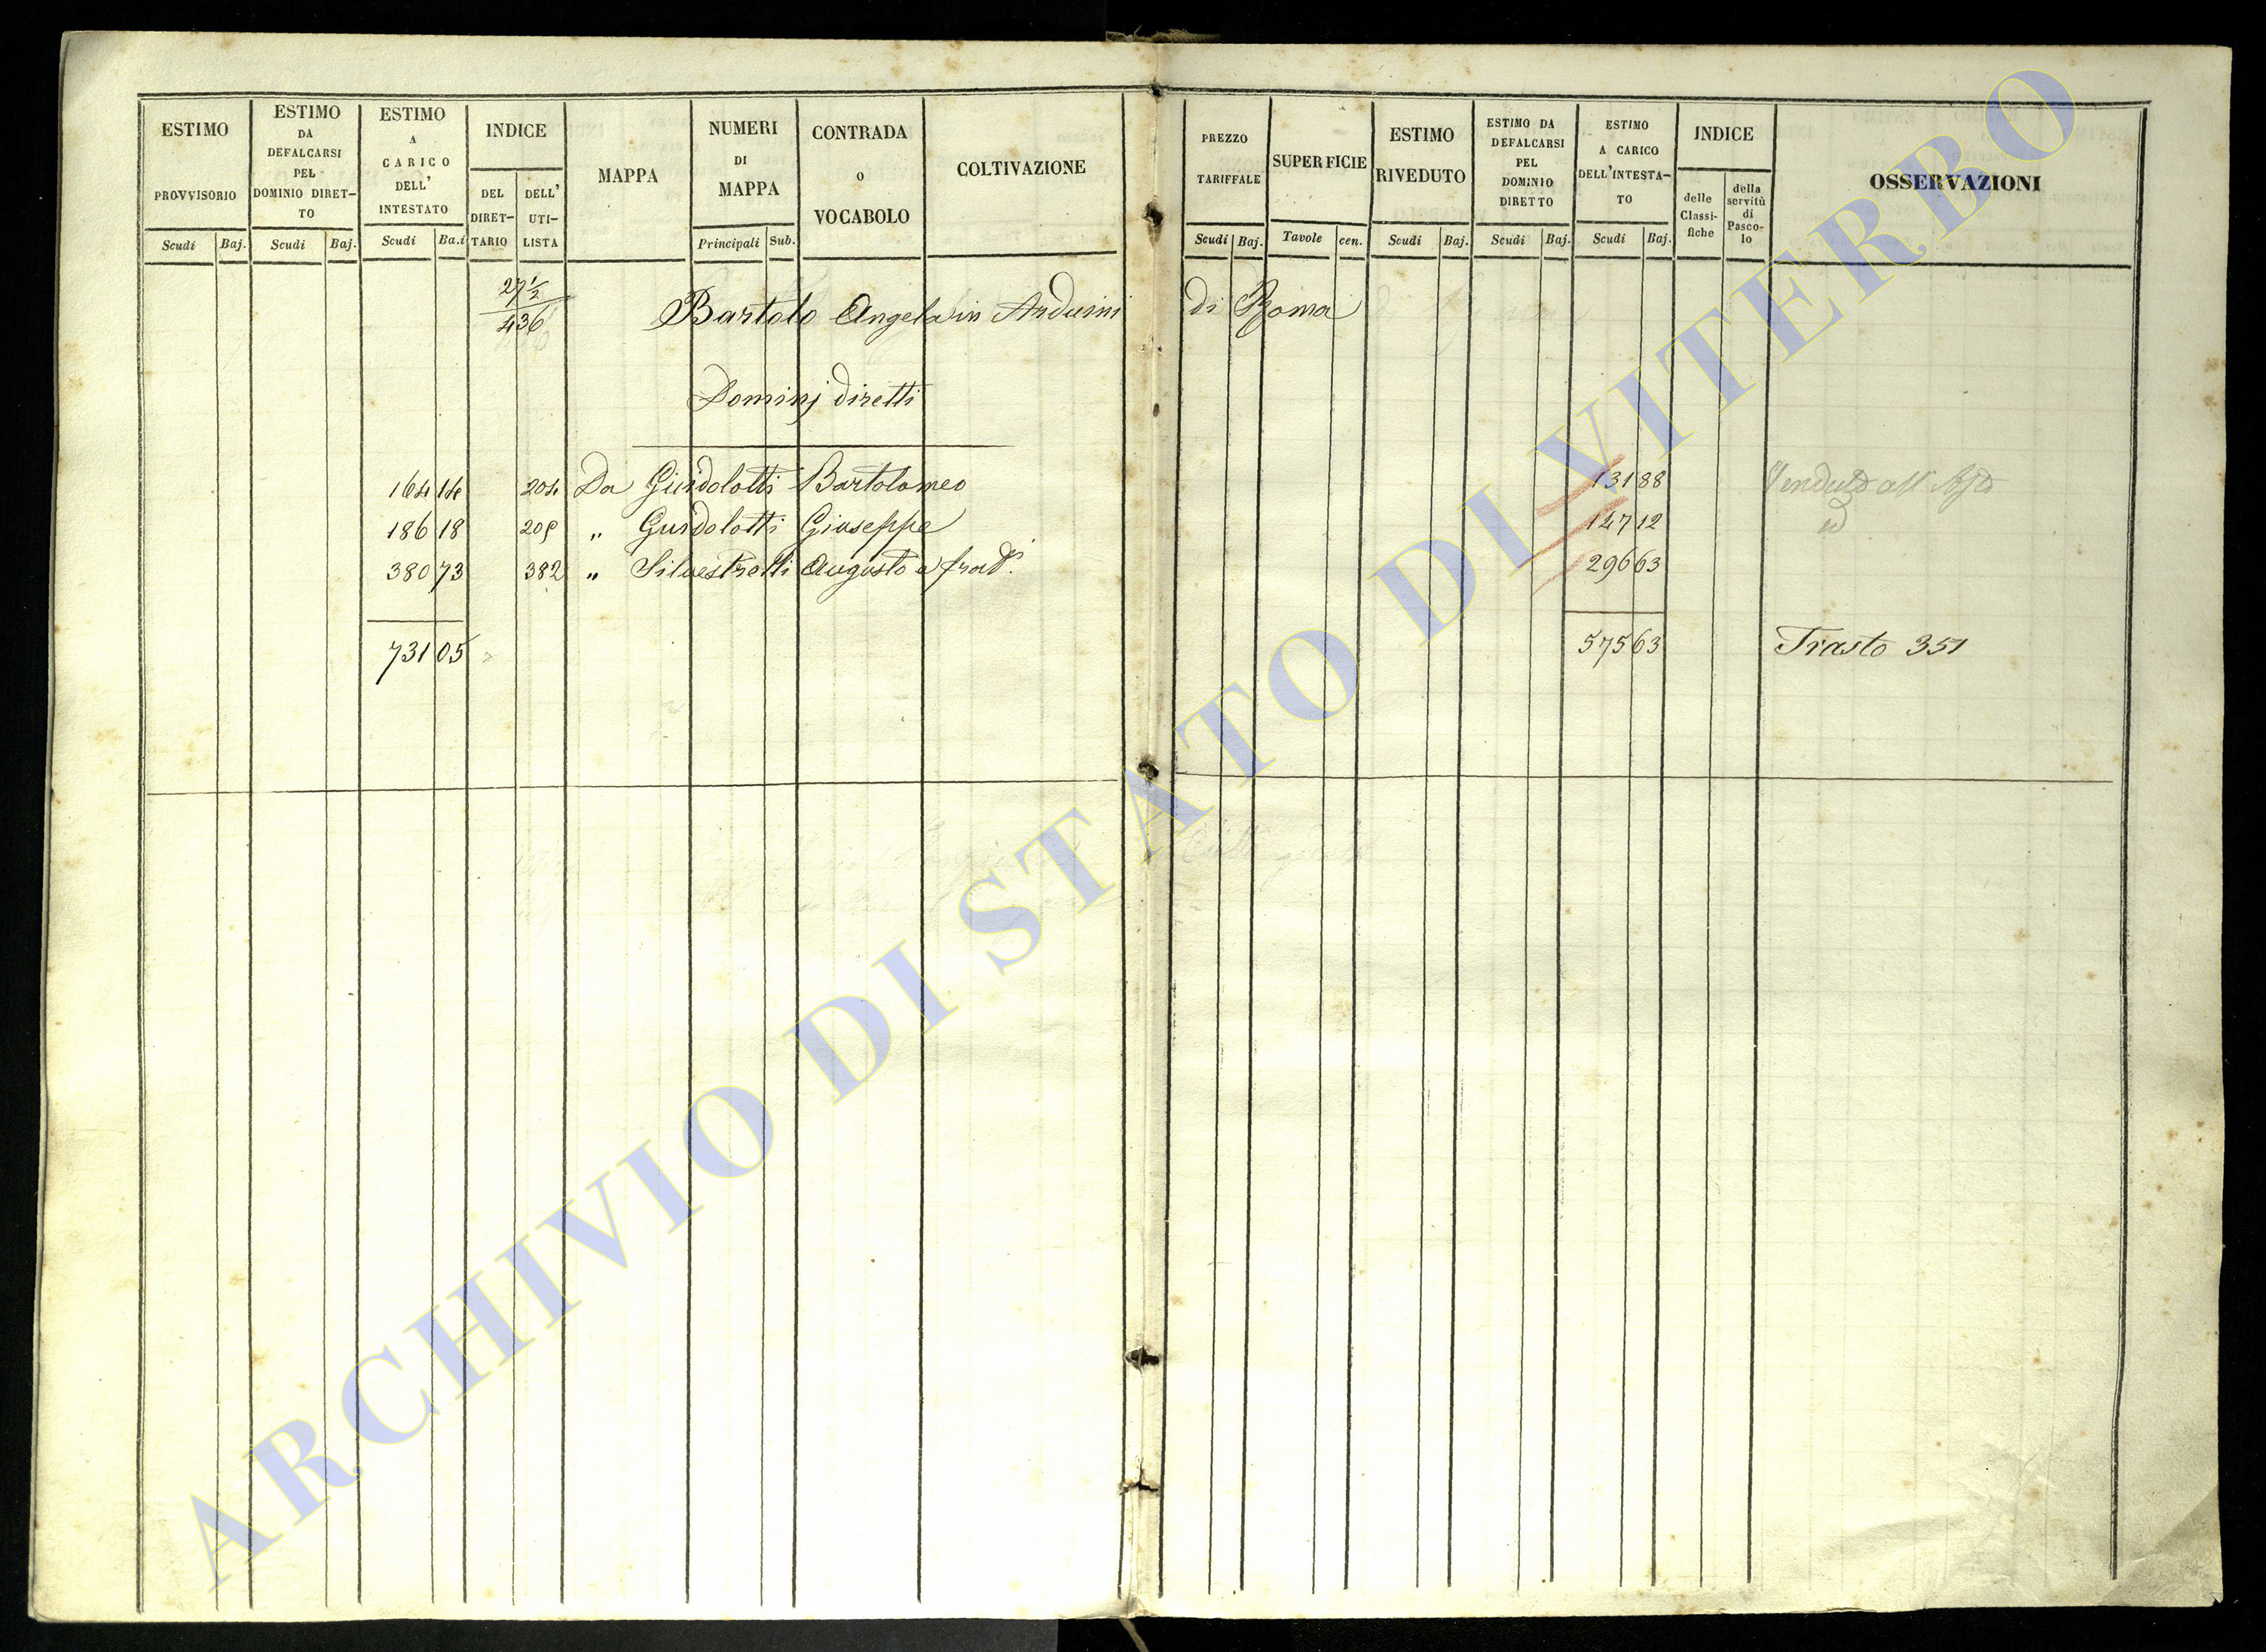 ESTIMO PROVVISORIO
Scudi Baj.
ESTIMO DA DEFALCARSI PEL DOMINIO DIRET-TO
Scudi Baj.
ESTIMO A CARICO DELL' INTESTATO
Scudi Ba.i
INDICE
DEL DIRET-TARIO
DELL' UTI-LISTA
MAPPA
NUMERI DI MAPPA
Principali Sub.
CONTRADA o VOCABOLO
COLTIVAZIONE
PREZZO TARIFFALE
Scudi Baj.
SUPERFICIE
Tavole cen.
ESTIMO RIVEDUTO
Scudi Baj.
ESTIMO DA DEFALCARSI PEL DOMINIO DIRETTO
Scudi Baj.
ESTIMO A CARICO DELL'INTESTA-TO
Scudi Baj.
INDICE
delle Classi-fiche
della servitù di Pasco-lo
OSSERVAZIONI
27 1/2
436
Bartolo Angela in Arduini di Roma
Dominj diretti
164 14 204 Da Guidolotti Bartolomeo 131 88
186 18 205 " Guidolotti Giuseppe 147 12
380 73 382 " Silvestrelli Augusto e frat. 296 63
731 05 575 63 Trasto 351
ARCHIVIO DI STATO DI VITERBO